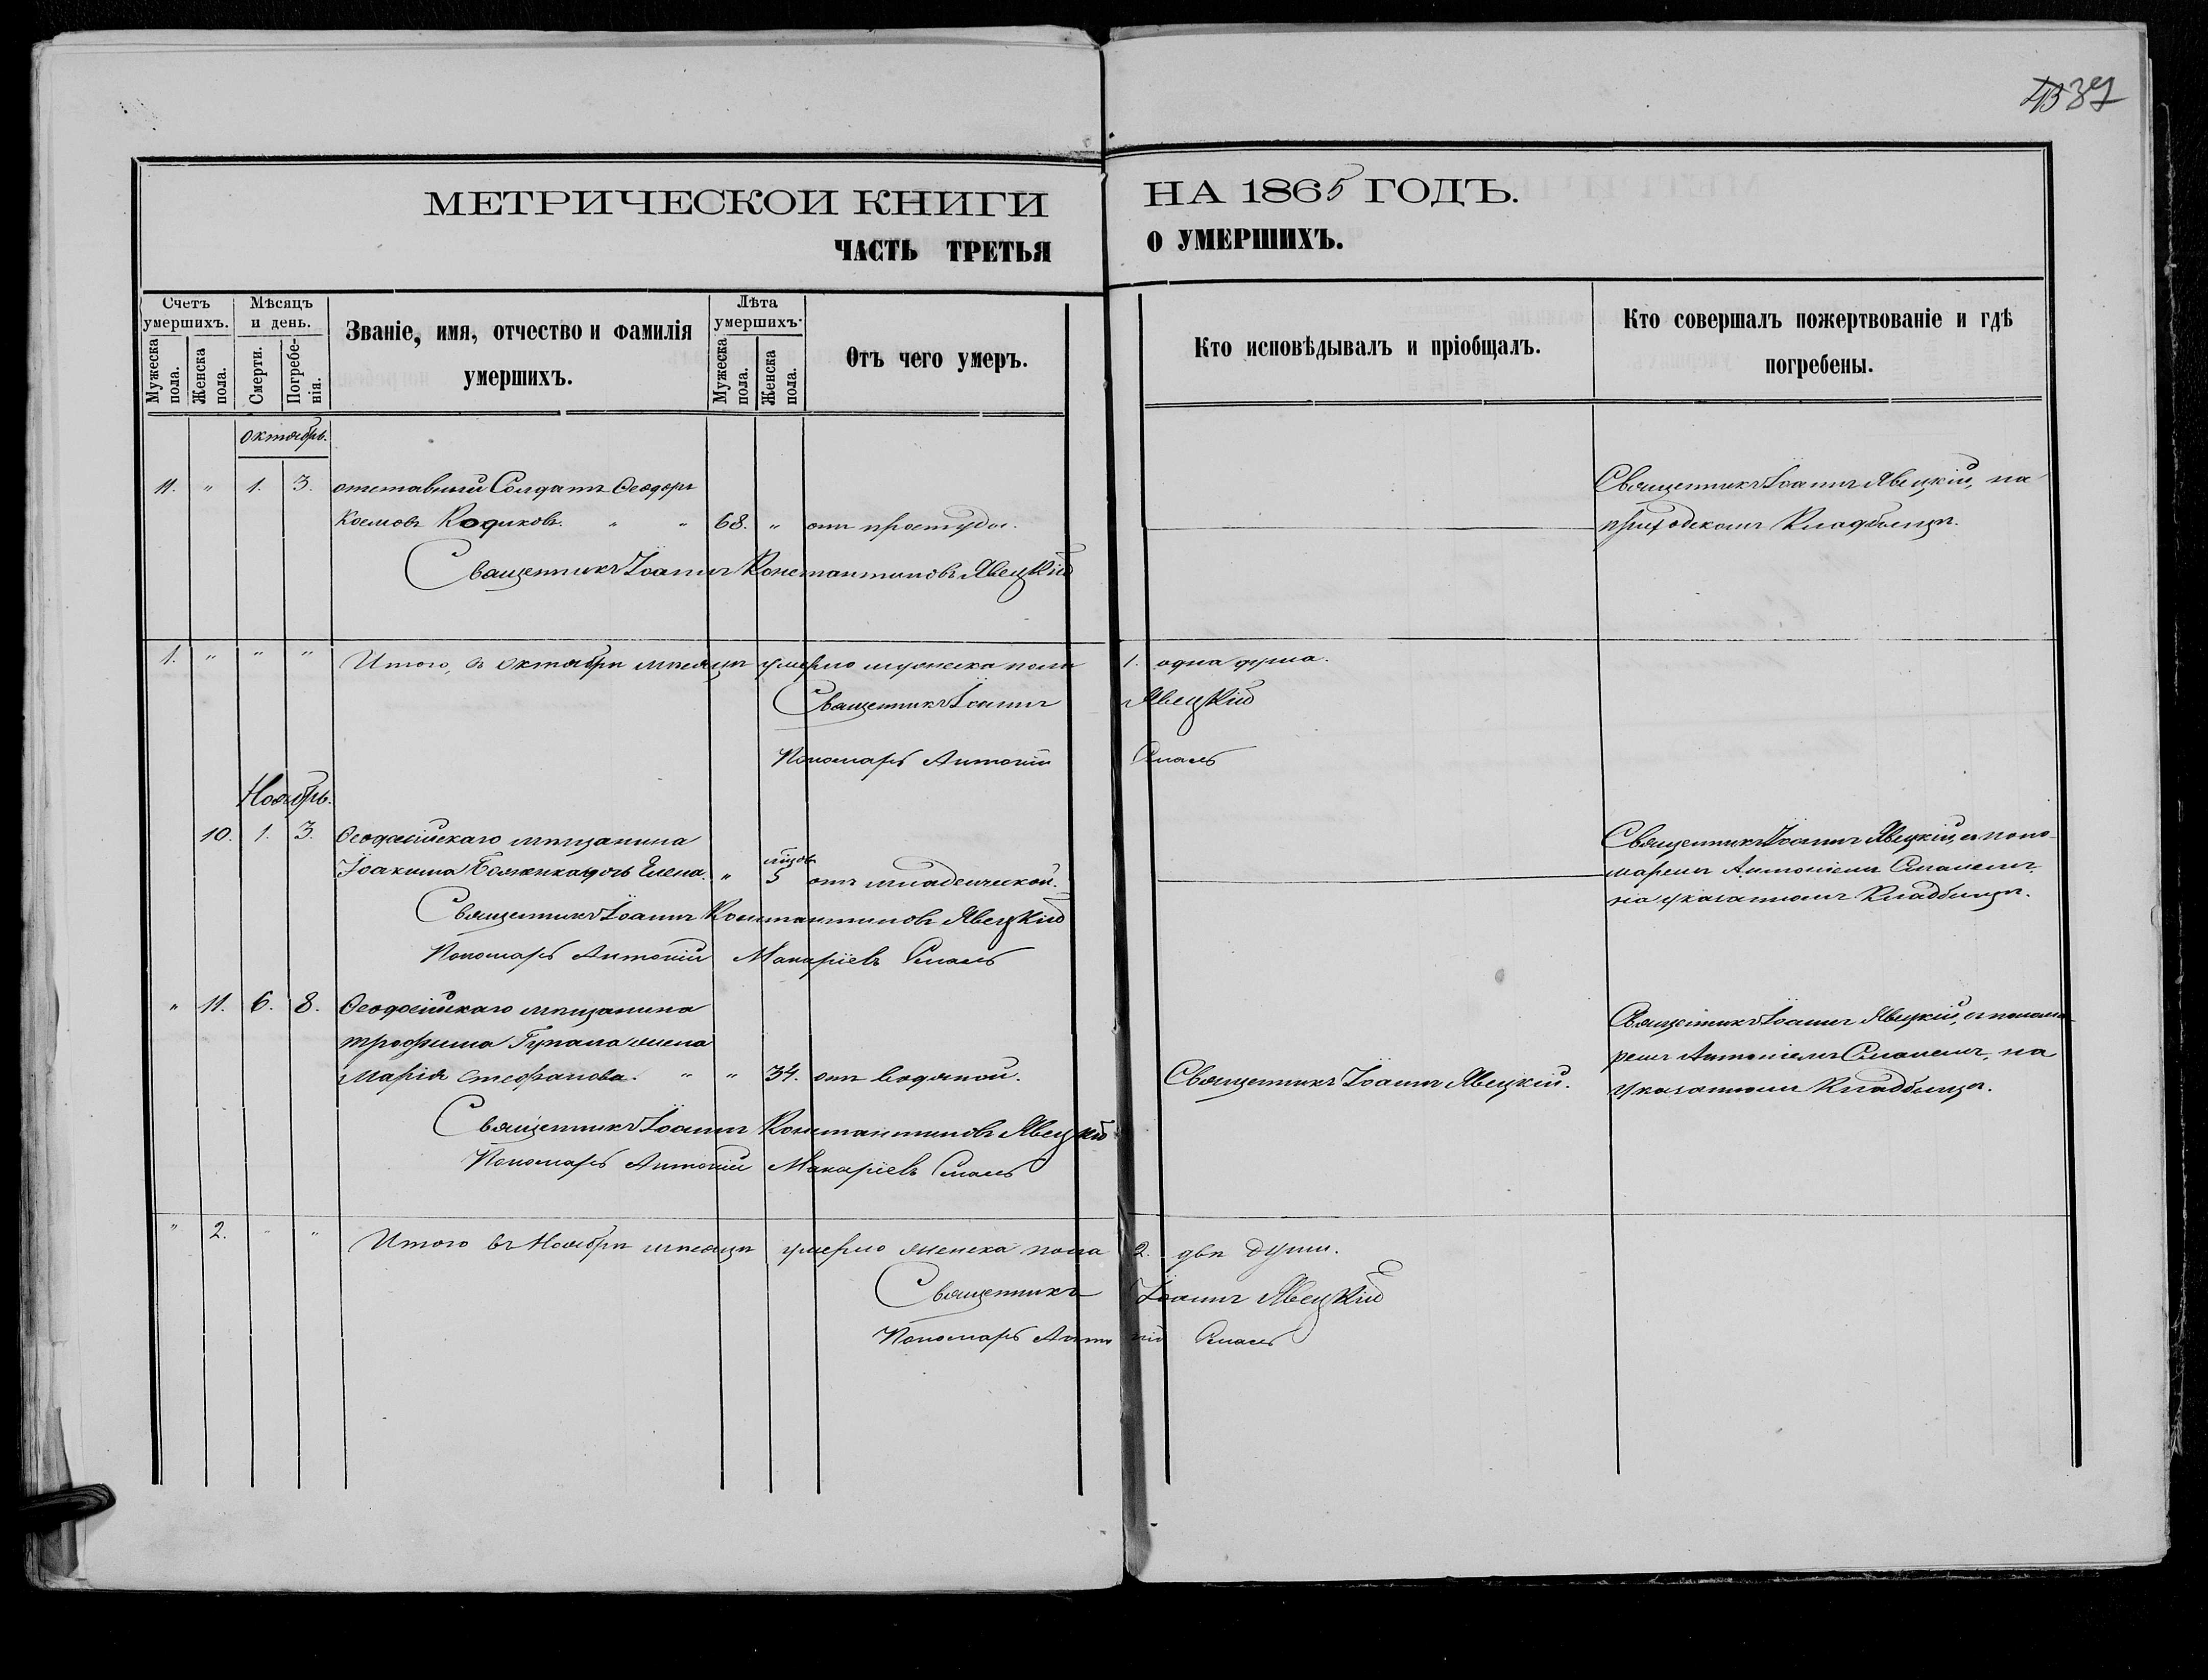 39
МЕТРИЧЕСКОИ КНИГИ НА 1865 ГОДЪ.
ЧАСТЬ ТРЕТЬЯ О УМЕРШИХЪ.
Счетъ умершихъ.
Мужеска пола.
Женска пола.
Мѣсяцъ и день.
Смерти.
Погребенія.
Званіе, имя, отчество и фамилія
умершихъ.
Лѣта умершихъ.
Мужеска пола.
Женска пола.
Отъ чего умеръ.
Кто исповѣдывалъ и пріобщалъ.
Кто совершалъ пожертвованіе и гдѣ
погребены.
Октябрь.
11. " 1. 3. отставный Солдатъ Ѳеодоръ
Космовъ Родиковъ. " " 68. " отъ простуды.
Священникъ Іоаннъ Явецкій, на
приходскомъ Кладбищѣ.
Священникъ Іоаннъ Константиновъ Явецкій
1. " " " Итого, в Октябрѣ мѣсяцѣ умерло мужеска пола 1. одна душа.
Священникъ Іоаннъ Явецкій
Пономарь Антоній
Ноябрь.
10. 1. 3. Ѳеодосійскаго мѣщанина
Іоакима дочь Елена. " 5 отъ младенческой.
Священникъ Іоаннъ Явецкій, съ поно-
маремъ Антоніемъ
на указанномъ Кладбищѣ.
Священникъ Іоаннъ Константиновъ Явецкій
Пономарь Антоній Макаріевъ
" 11. 6. 8. Ѳеодосійскаго мѣщанина
Трофима Гупала жена
Марія Стефанова. " " 34. отъ водяной.
Священникъ Іоаннъ Явецкій.
Священникъ Іоаннъ Явецкій, съ понома-
ремъ Антоніемъ на
указанномъ Кладбищѣ.
Священникъ Іоаннъ Константиновъ Явецкій
Пономарь Антоній Макаріевъ
" 2. " " Итого въ Ноябрѣ мѣсяцѣ умерло женска пола 2. двѣ души.
Священникъ Іоаннъ Явецкій
Пономарь Антоній